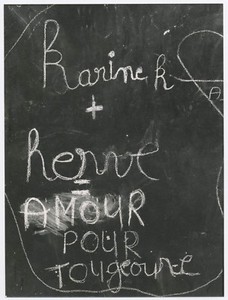 Karine k
+
herve
AMOUR
POUR
TOUGEOURE
A